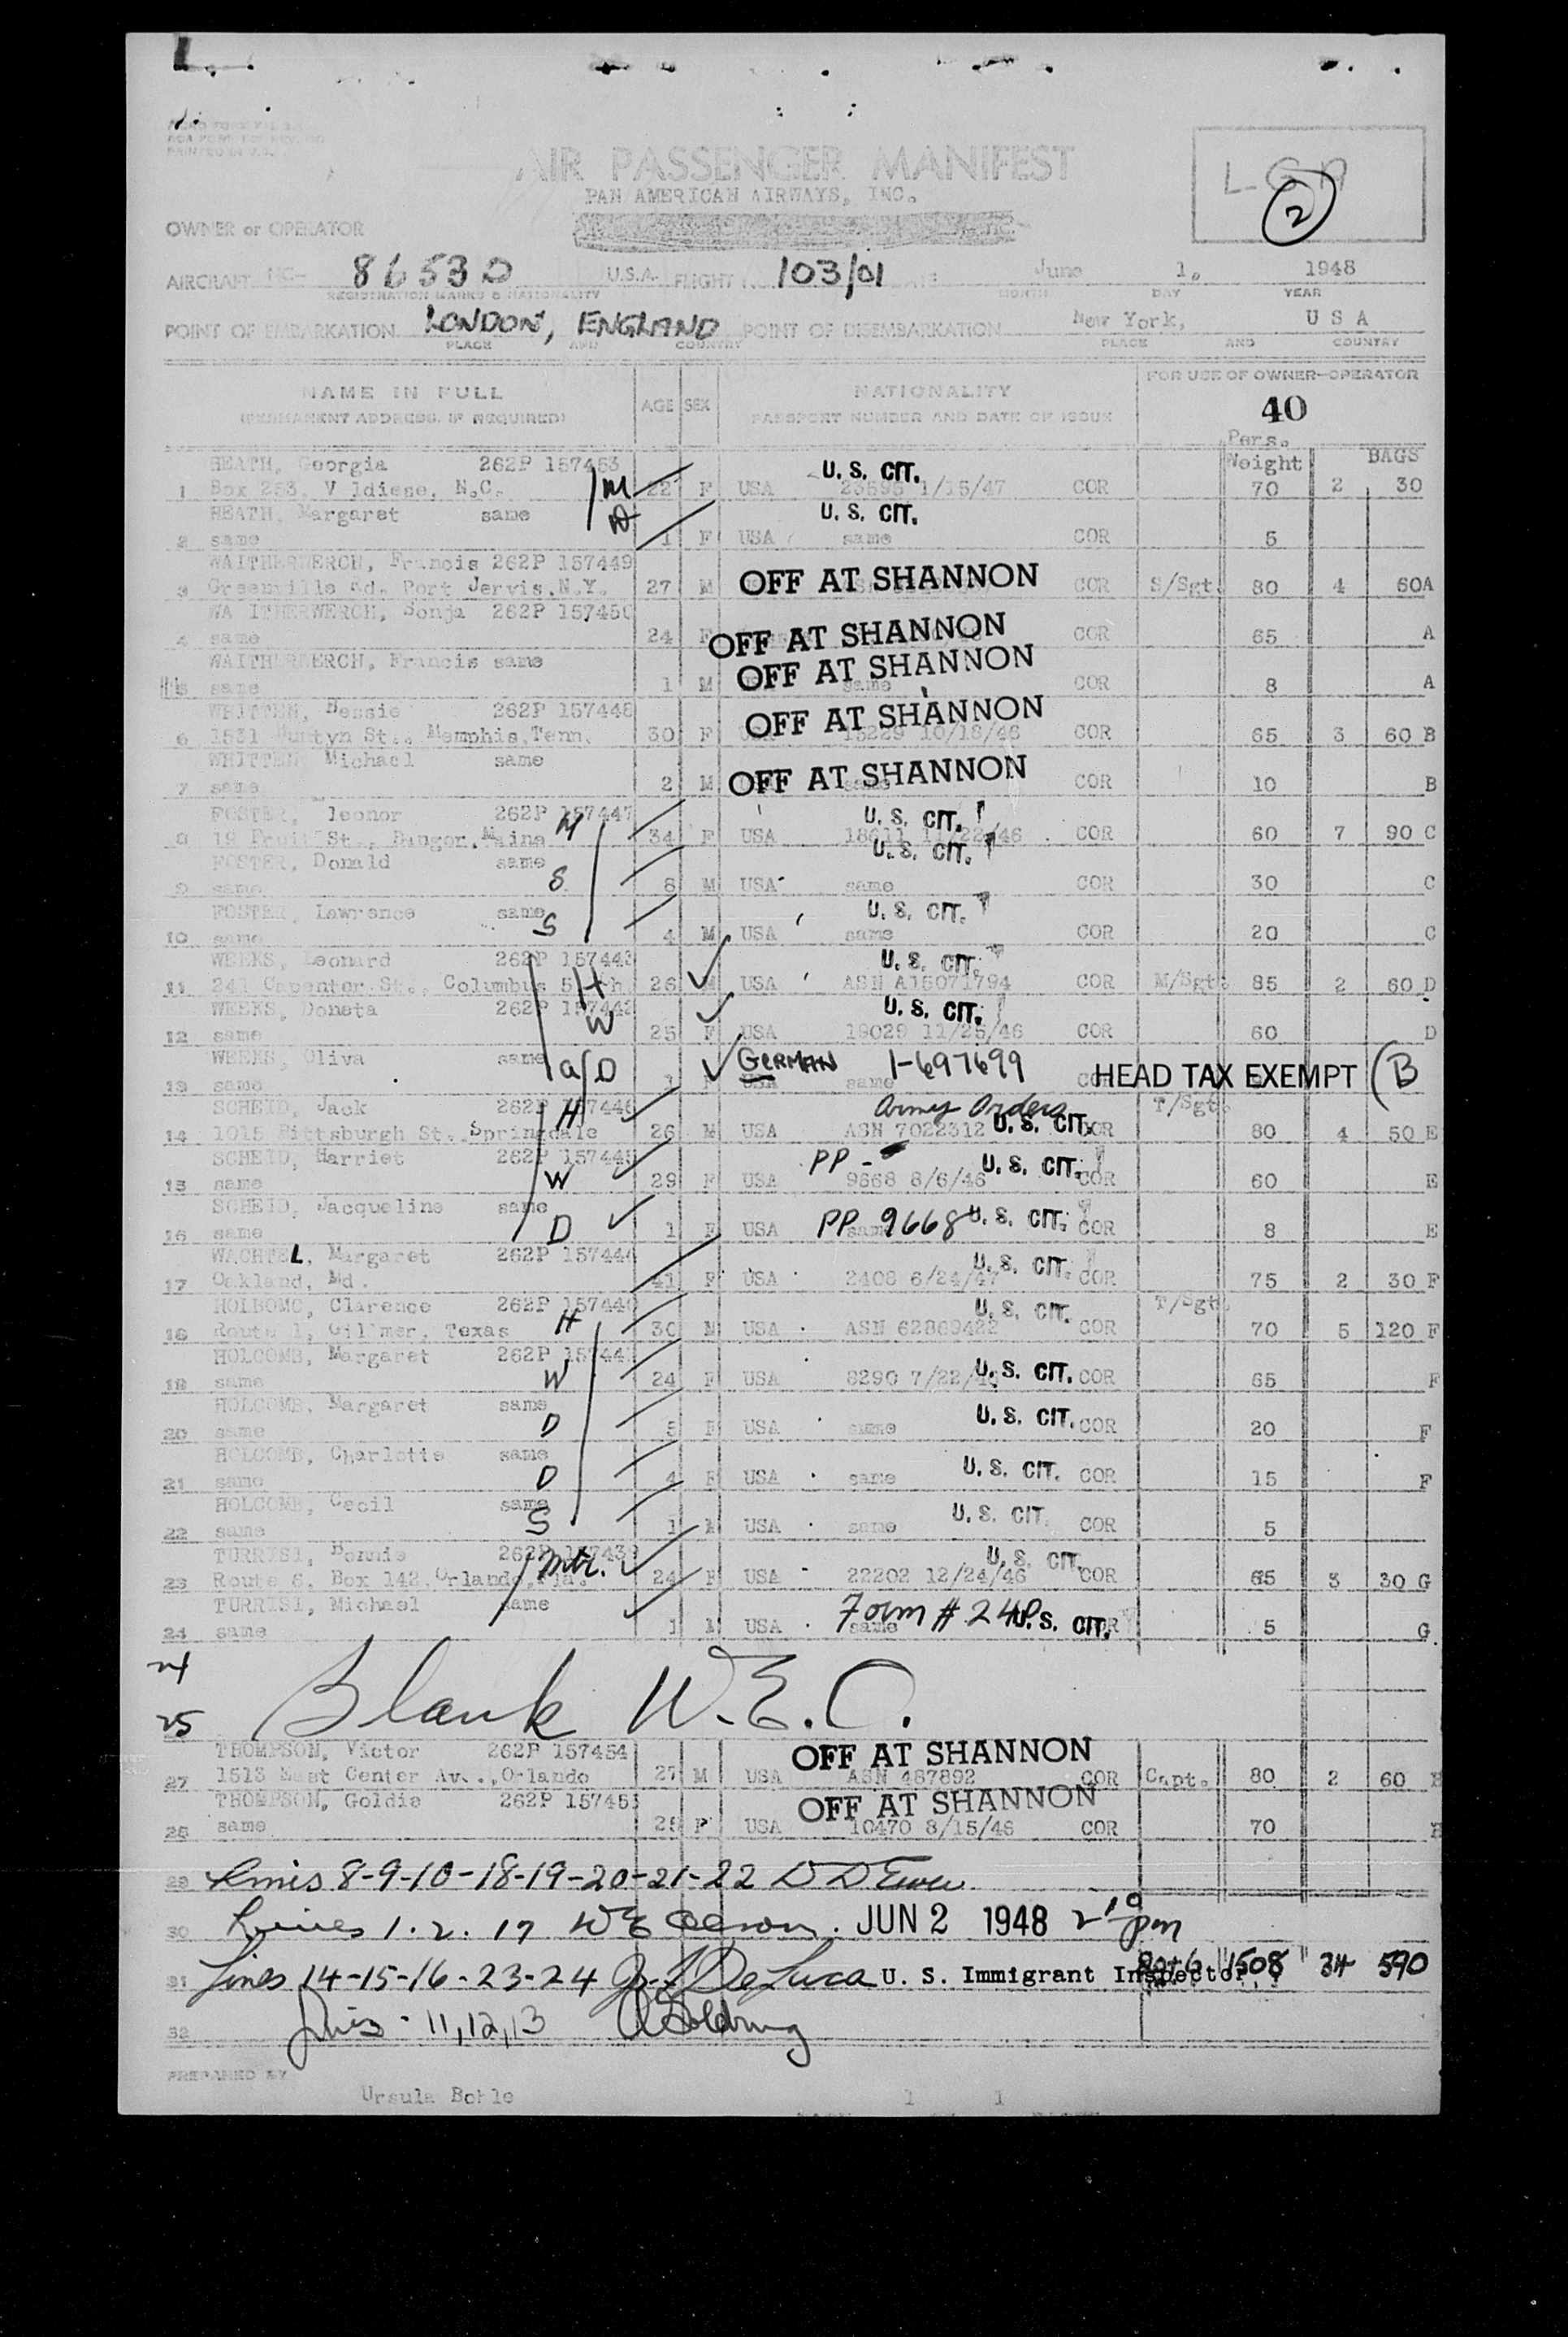 AIR PASSENGER MANIFEST
PAN AMERICAN AIRWAYS, INC.
L-G-A
2
OWNER or OPERATOR
AIRCRAFT NC- 86530 U.S.A. FLIGHT 103/01 June 1, 1948
REGISTRATION MARKS & NATIONALITY MONTH DAY YEAR
POINT OF EMBARKATION LONDON, ENGLAND POINT OF DISEMBARKATION New York, U S A
PLACE AND COUNTRY PLACE AND COUNTRY
NAME IN FULL AGE SEX NATIONALITY FOR USE OF OWNER-OPERATOR
(PERMANENT ADDRESS, IF REQUIRED) PASSPORT NUMBER AND DATE OF ISSUE 40
Pers. Weight BAGS
HEATH, Georgia 262P 157453 U. S. CIT.
1 Box 253, V ldiese, N.C. M 22 F USA 23595 1/15/47 COR 70 2 30
HEATH, Margaret same D U. S. CIT.
2 same 1 F USA same COR 5
WAITHERWERCH, Francis 262P 157449
3 Greenville Rd. Port Jervis, N.Y. 27 M OFF AT SHANNON COR S/Sgt. 80 4 60A
WAITHERWERCH, Sonja 262P 157450
4 same 24 F OFF AT SHANNON COR 65 A
WAITHERWERCH, Francis same
5 same 1 M OFF AT SHANNON same COR 8 A
WHITTEN, Bessie 262P 157448
6 1531 Buntyn St., Memphis, Tenn. 30 F OFF AT SHANNON 15229 10/18/46 COR 65 3 60 B
WHITTEN, Michael same
7 same 2 M OFF AT SHANNON COR 10 B
FOSTER, leonor 262P 157447 M U. S. CIT.
8 19 Fruit St., Bangor, Maine 34 F USA 18611 11/22/46 COR 60 7 90 C
FOSTER, Donald same S U. S. CIT.
9 same 8 M USA same COR 30 C
FOSTER, Lawrence same S U. S. CIT.
10 same 4 M USA same COR 20 C
WEEKS, Leonard 262P 157443 U. S. CIT.
11 241 Capenter St., Columbus 5, h H 26 M USA ASN A15071794 COR M/Sgt. 85 2 60 D
WEEKS, Doneta 262P 157442 W U. S. CIT.
12 same 25 F USA 19029 11/25/46 COR 60 D
WEEKS, Oliva same a/D GERMAN 1-697699
13 same 1 F USA same HEAD TAX EXEMPT (B
SCHEID, Jack 262P 157446 H Army Orders T/Sgt.
14 1015 Pittsburgh St. Springdale 26 M USA ASN 7022312 U. S. CIT. COR 80 4 50 E
SCHEID, Harriet 262P 157445 W PP - U. S. CIT.
15 same 29 F USA 9668 8/6/46 COR 60 E
SCHEID, Jacqueline same D PP 9668 U. S. CIT.
16 same 1 F USA same COR 8 E
WACHTEL, Margaret 262P 157444 U. S. CIT.
17 Oakland, Md. 41 F USA 2408 6/24/47 COR 75 2 30 F
HOLBOMC, Clarence 262P 157440 H U. S. CIT. T/Sgt.
18 Route 1, Gil'mer, Texas 30 M USA ASN 62869422 COR 70 5 120 F
HOLCOMB, Margaret 262P 15744 W U. S. CIT.
19 same 24 F USA 8290 7/22/ COR 65 F
HOLCOMB, Margaret same D U. S. CIT.
20 same 5 F USA same COR 20 F
HOLCOMB, Charlotte same D U. S. CIT.
21 same 4 F USA same COR 15 F
HOLCOMB, Cecil same S U. S. CIT.
22 same 1 M USA same COR 5
TURRISI, Bonnie 262P 157439 Mtr. U. S. CIT.
23 Route 6, Box 142, Orlando, Fla. 24 F USA 22202 12/24/46 COR 65 3 30 G
TURRISI, Michael same Form # 240 U. S. CIT.
24 same 1 M USA same COR 5 G
24
25 Blank W.E.C.
THOMPSON, Victor 262P 157454 OFF AT SHANNON
27 1513 East Center Av., Orlando 27 M USA ASN 487892 COR Capt. 80 2 60 H
THOMPSON, Goldie 262P 15745 OFF AT SHANNON
28 same 25 F USA 10470 8/15/46 COR 70 H
29 Lines 8-9-10-18-19-20-21-22
30 Lines 1. 2. 17 JUN 2 1948 2 10 pm
31 Lines 14-15-16-23-24 De Luca U. S. Immigrant Inspector 1508 34 590
32 Lines - 11, 12, 13
PREPARED BY
Ursula
1 1